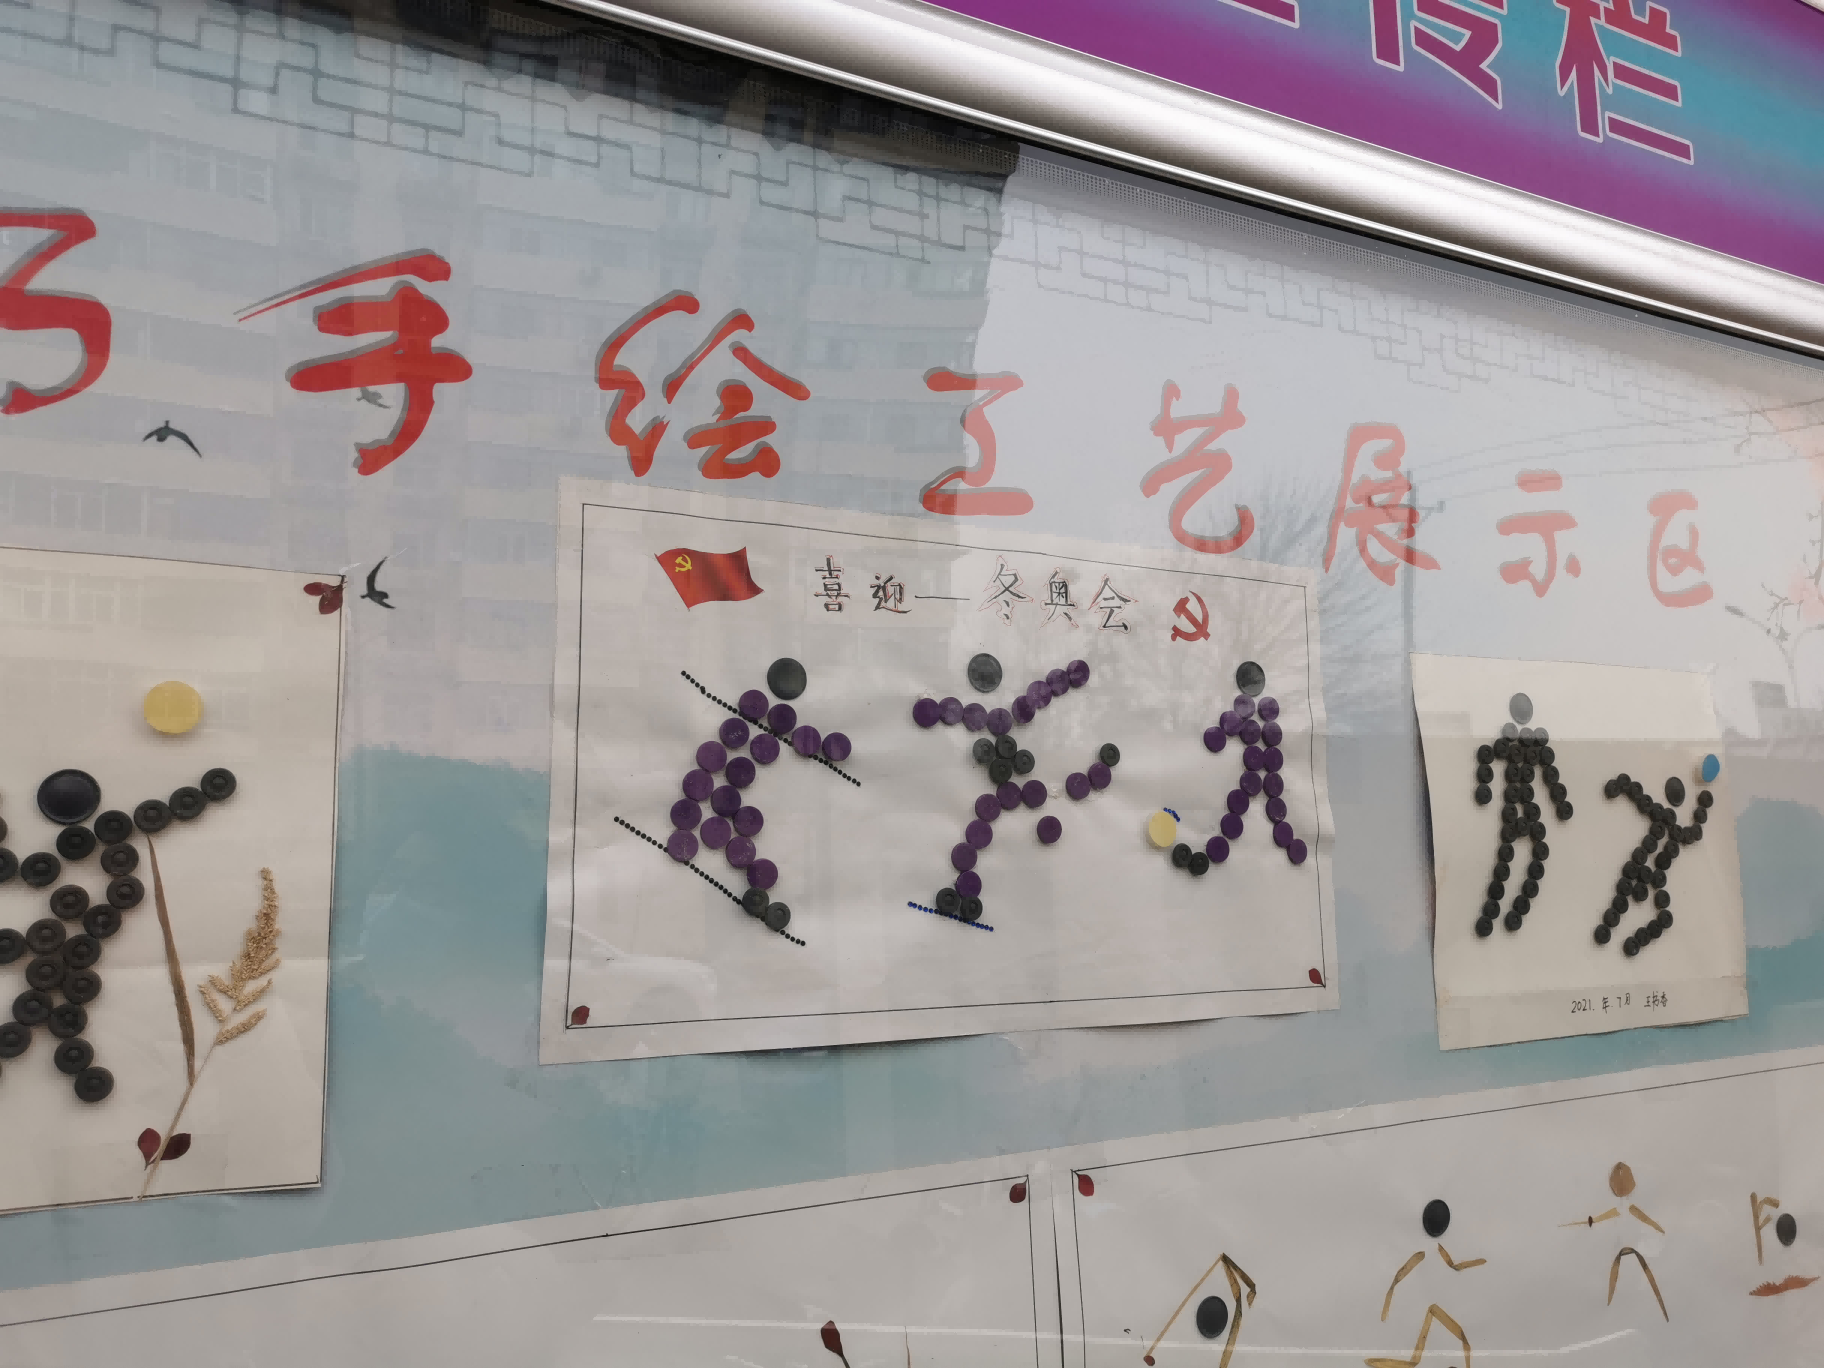 传栏
巧手绘工艺展示区
喜迎—冬奥会
2021.年.7月